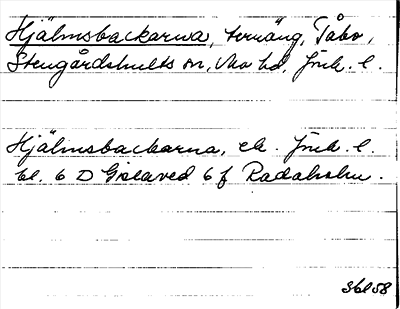 Hjälmsbackarna, terräng, Tåbo,
Stengårdshults sn, Mo hd. Jönk. l.
Hjälmsbackarna, ek. Jönk. l.
bl. 6 D Gislaved 6 f Radaholm.
3658